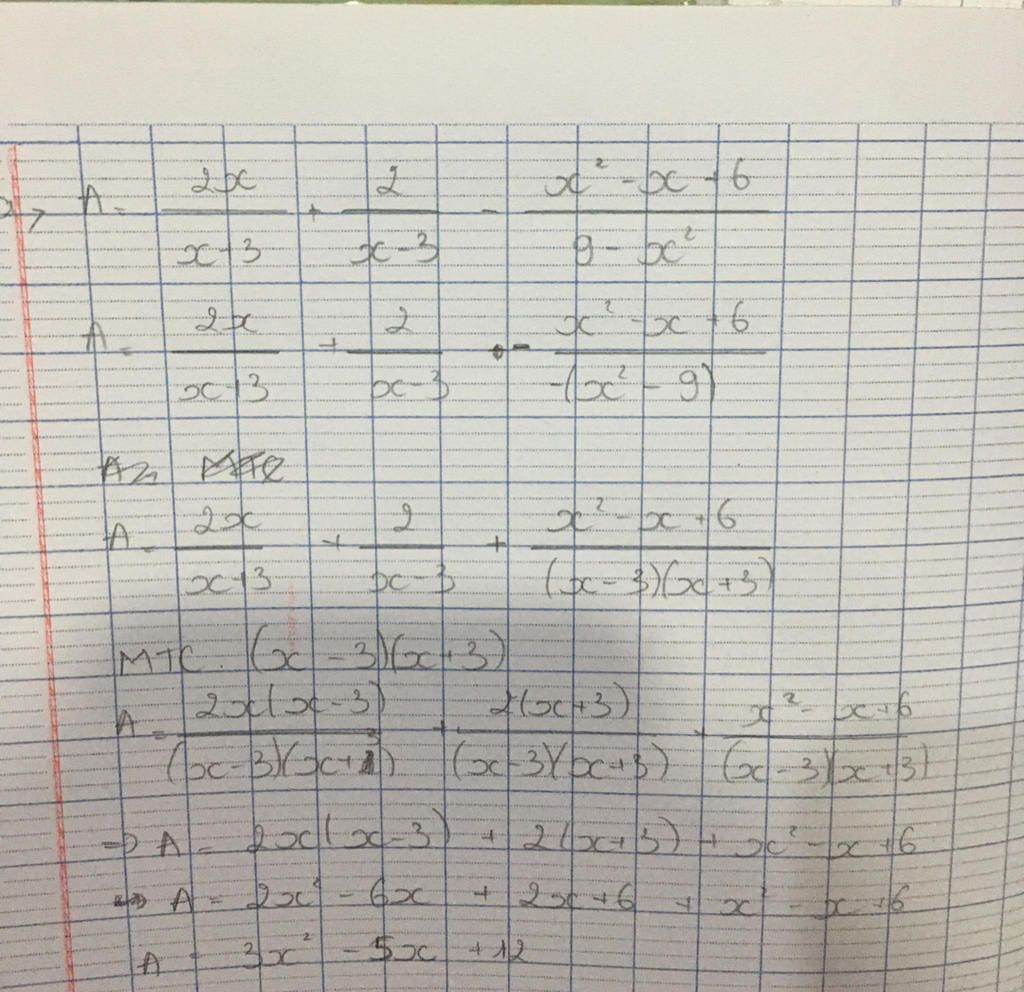 A = 2x/(x+3) + 2/(x-3) - (x² - x + 6)/(9 - x²)
A = 2x/(x+3) + 2/(x-3) - (x² - x + 6)/(-(x² - 9))
A = 2x/(x+3) + 2/(x-3) + (x² - x + 6)/((x-3)(x+3))
MTC: (x - 3)(x+3)
A = 2x(x-3)/((x-3)(x+3)) + 2(x+3)/((x-3)(x+3)) + (x² - x+6)/((x-3)(x+3))
=> A = 2x(x-3) + 2(x+3) + x² - x + 6
=> A = 2x² - 6x + 2x + 6 + x² - x + 6
A = 3x² - 5x + 12